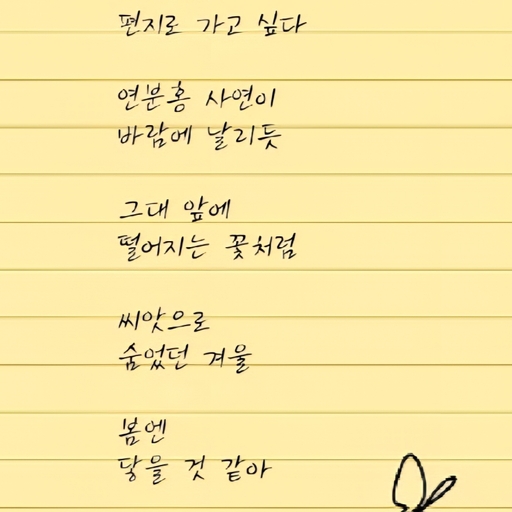 편지로 가고 싶다
연분홍 사연이
바람에 날리듯
그대 앞에
떨어지는 꽃처럼
씨앗으로
숨었던 겨울
봄엔
닿을 것 같아